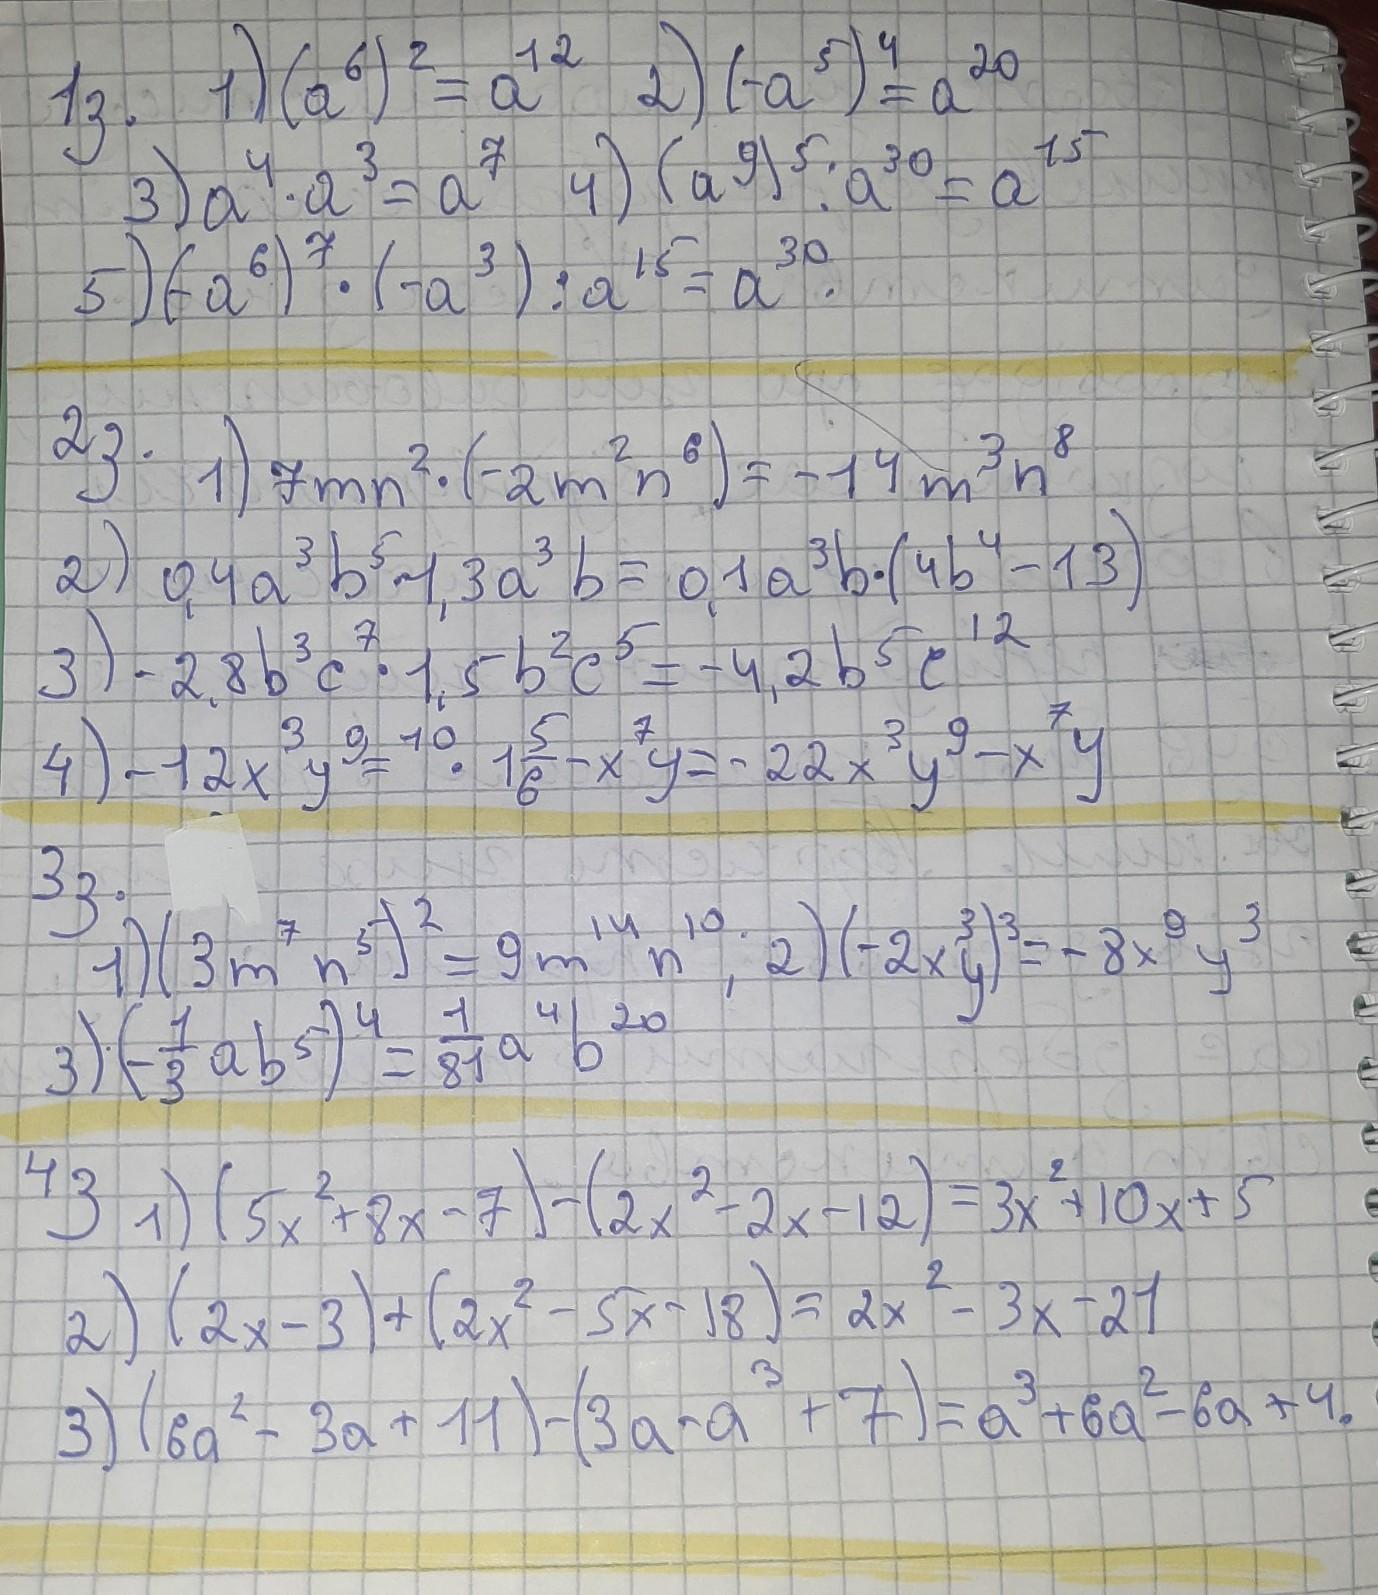 1з. 1) (a⁶)² = a¹² 2) (-a⁵)⁴ = a²⁰
3) a⁴ · a³ = a⁷ 4) (a⁹)⁵ : a³⁰ = a¹⁵
5) (-a⁶)⁷ · (-a³) : a¹⁵ = a³⁰.
2з. 1) 7mn² · (-2m²n⁶) = -14m³n⁸
2) 0,4a³b⁵ - 1,3a³b = 0,1a³b · (4b⁴ - 13)
3) -2,8b³c⁷ · 1,5b²c⁵ = -4,2b⁵c¹²
4) -12x³y⁹⁼¹⁰ · 1 5/6 - x⁷y = -22x³y⁹ - x⁷y
3з.
1) (3m⁷n⁵)² = 9m¹⁴n¹⁰; 2) (-2x³y)³ = -8x⁹y³
3) (-1/3 ab⁵)⁴ = 1/81 a⁴b²⁰
4з 1) (5x² + 8x - 7) - (2x² - 2x - 12) = 3x² + 10x + 5
2) (2x - 3) + (2x² - 5x - 18) = 2x² - 3x - 21
3) (6a² - 3a + 11) - (3a - a³ + 7) = a³ + 6a² - 6a + 4.